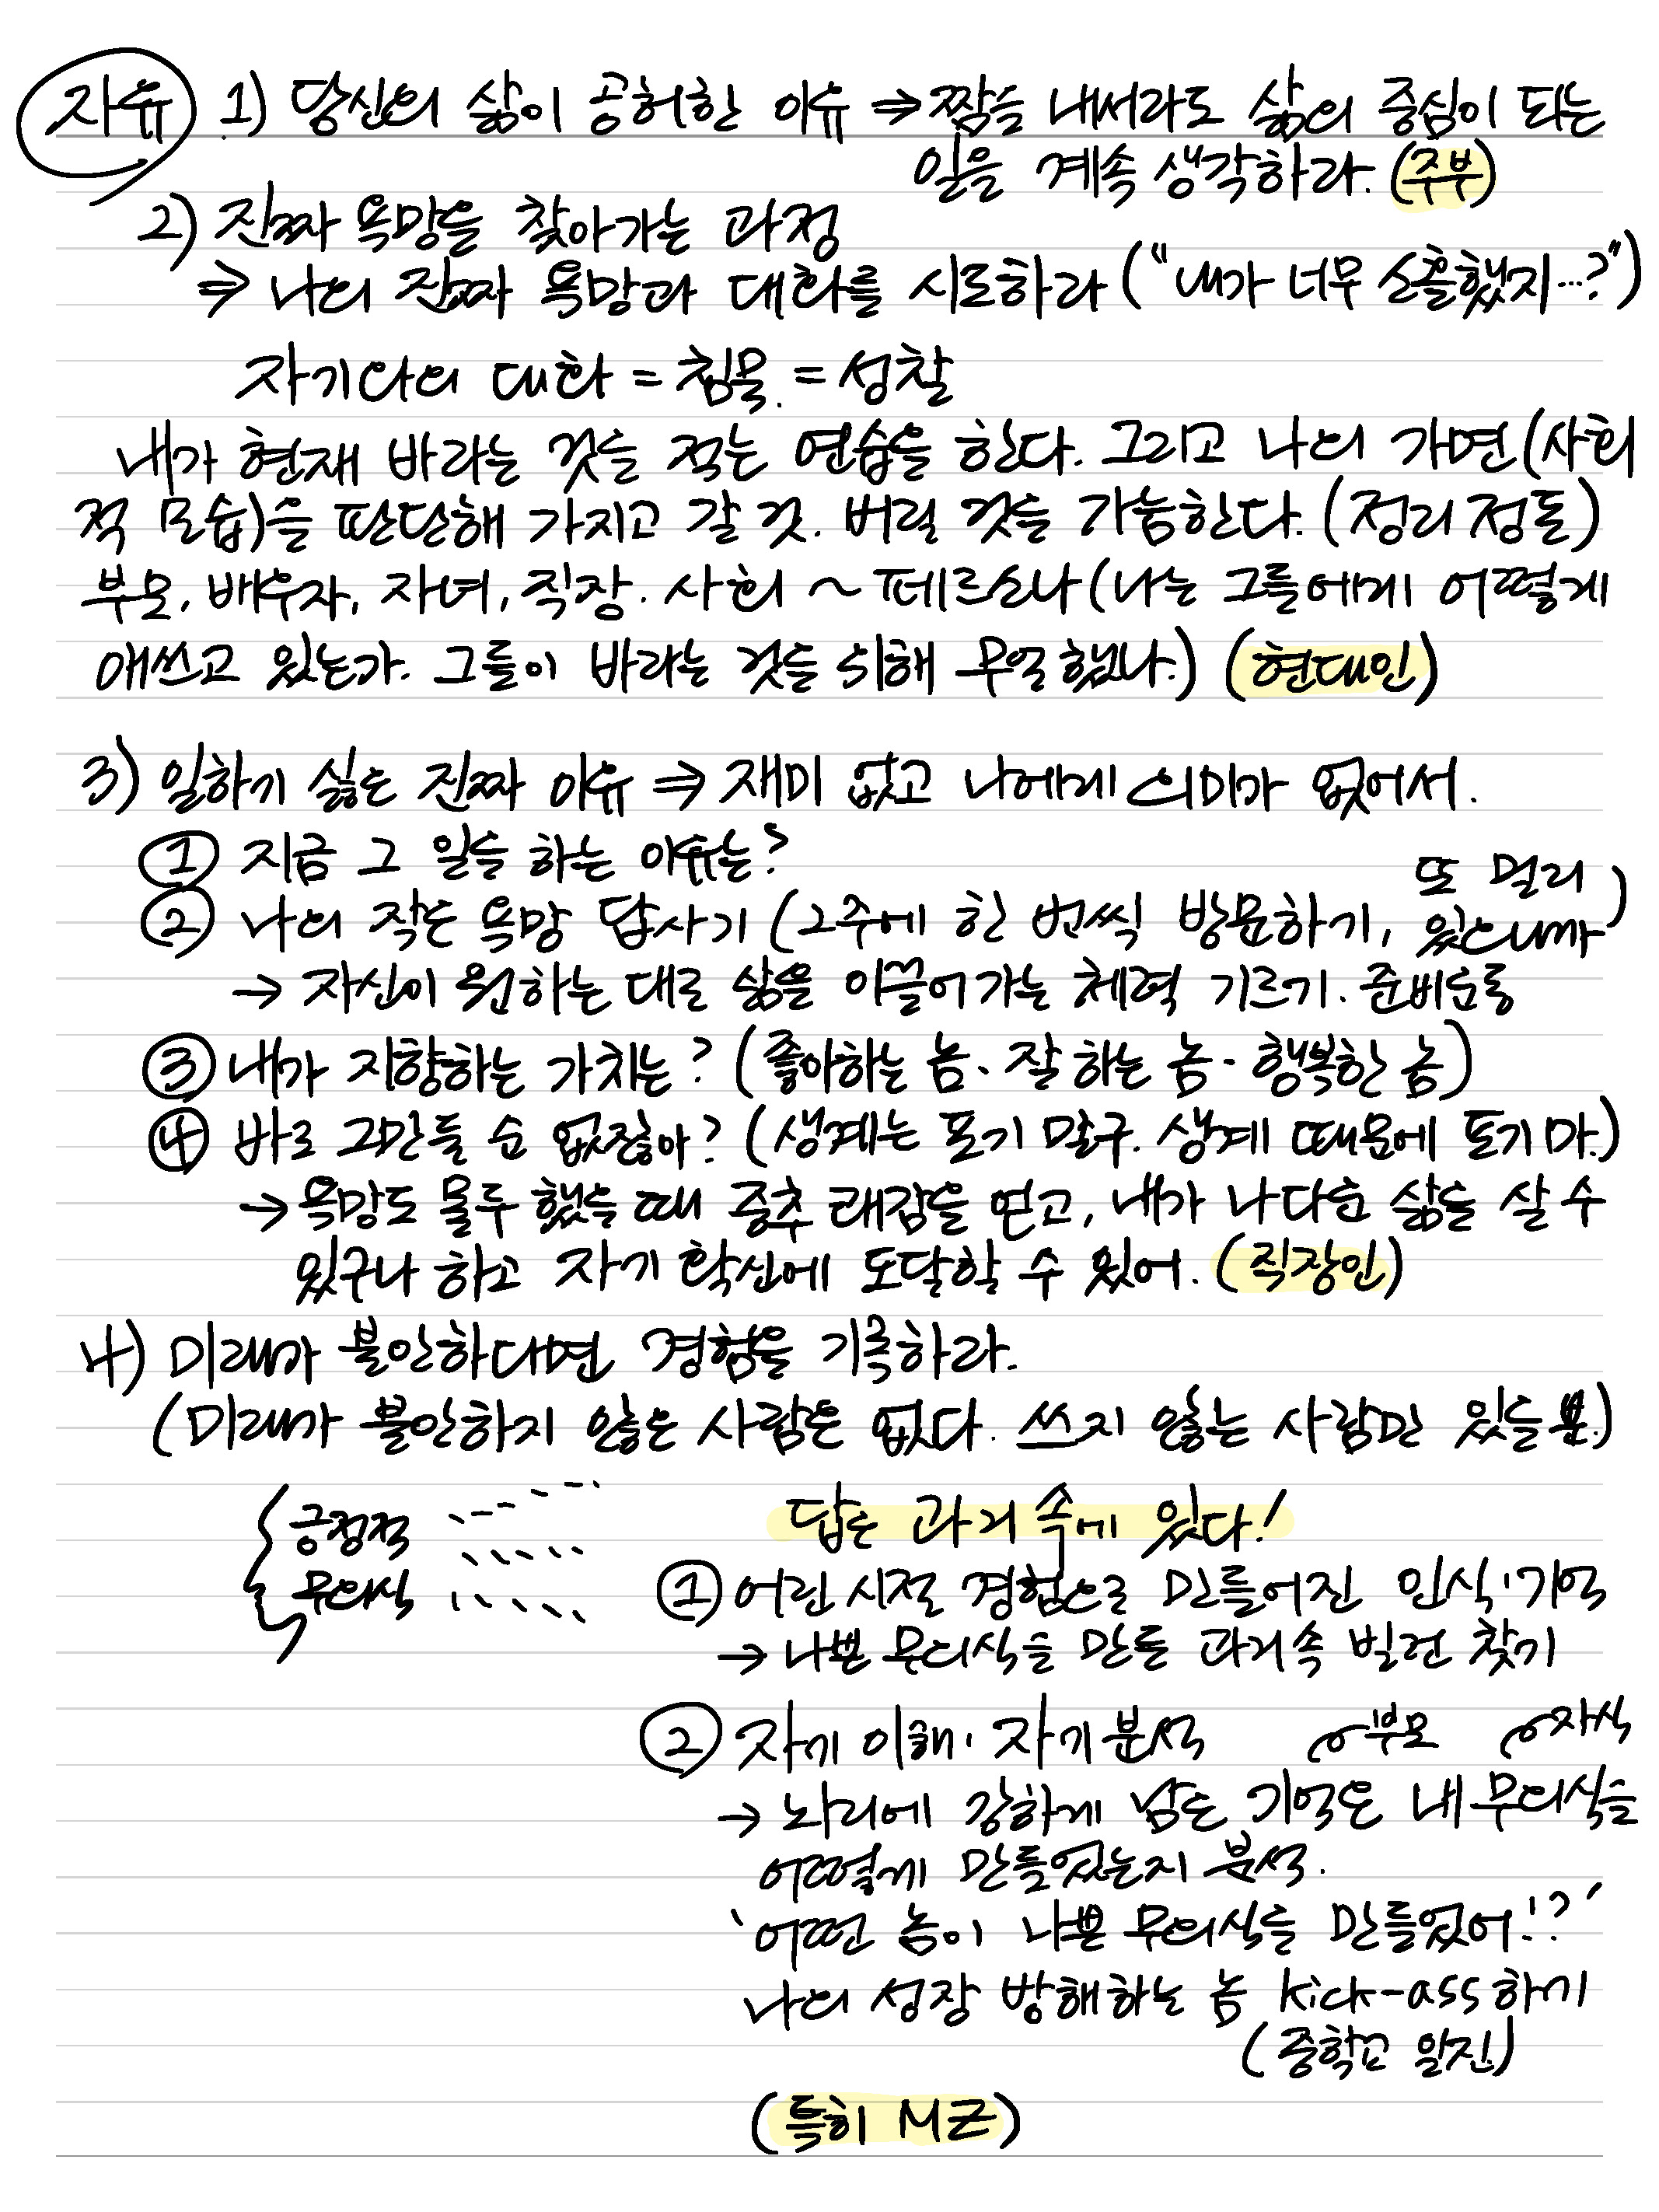 자유 1) 당신의 삶이 공허한 이유 ⇒ 짬을 내서라도 삶의 중심이 되는
일을 계속 생각하라. (주부)
2) 진짜 욕망을 찾아가는 과정
⇒ 나의 진짜 욕망과 대화를 시도하라 ("내가 너무 소홀했지…?")
자기와의 대화 = 침묵. = 성찰
내가 현재 바라는 것을 적는 연습을 한다. 그리고 나의 가면(사회
적 모습)을 판단해 가지고 갈 것. 버릴 것을 가늠한다. (정리정돈)
부모, 배우자, 자녀, 직장. 사회 ~ 페르소나 (나는 그들에게 어떻게
애쓰고 있는가. 그들이 바라는 것을 위해 무얼 했나.) (현대인)
3) 일하기 싫은 진짜 이유 ⇒ 재미 없고 나에게 의미가 없어서.
① 지금 그 일을 하는 이유는?
② 나의 작은 욕망 답사기 (2주에 한 번씩 방문하기, 또 멀리
있으니까)
→ 자신이 원하는 대로 삶을 이끌어가는 체력 기르기. 준비운동
③ 내가 지향하는 가치는? (좋아하는 놈、잘 하는 놈 - 행복한 놈)
④ 바로 그만둘 순 없잖아? (생계는 포기 말구. 생계 때문에 포기 마.)
→ 욕망도 몰두 했을 때 증추 쾌감을 얻고, 내가 나다운 삶을 살 수
있구나 하고 자기 확신에 도달할 수 있어. (직장인)
4) 미래가 불안하다면 경험을 기록하라.
(미래가 불안하지 않은 사람은 없다. 쓰지 않는 사람만 있을 뿐.)
긍정적
무의식
답은 과거 속에 있다!
① 어린 시절 경험으로 만들어진 인식·기억
→ 나쁜 무의식을 만든 과거 속 빌런 찾기
② 자기 이해· 자기분석 부모 자식
→ 뇌리에 강하게 남은 기억은 내 무의식을
어떻게 만들었는지 분석.
'어떤 놈이 나쁜 무의식을 만들었어!?'
나의 성장 방해하는 놈 kick-ass 하기
(중학교 일진)
(특히 MZ)